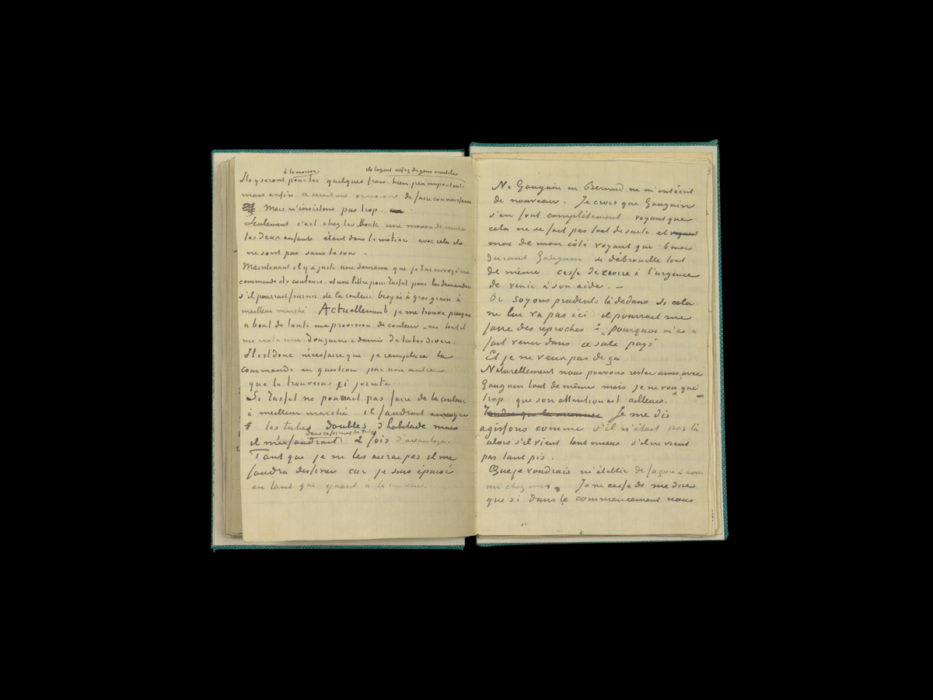 à la maison ils logent assez de gens
Ils y seront pour les quelques frais bien peu importants
mais enfin de faire connaissance
Mais n'insistons pas trop.
Seulement c'est chez les
les deux enfants étant dans le métier avec cela ils
ne sont pas sans le sou.
Maintenant il y a juste une semaine que je t'ai envoyé une
commande de couleurs et une lettre pour Tasset pour lui demander
s'il pourrait fournir de la couleur broyée à gros grain à
meilleur marché Actuellement je me trouve presque
à bout de toute ma provision de couleur, en tout il
me reste une douzaine et demie de tubes divers.
Il est donc nécessaire que je remplace la
commande en question par une autre
que tu trouveras ci jointe
Si Tasset ne pourrait pas faire de la couleur
à meilleur marché il faudrait envoyer
les tubes doubles d'habitude mais
dans ce format
il m'en faudrait 2 fois davantage
Tant que je ne les aurai pas il me
faudra dessiner car je suis épuisé
en tant que quant à la couleur.
Ni Gauguin ni Bernard ne m'ont écrit
de nouveau. Je crois que Gauguin
s'en fout complètement voyant que
cela ne se fait pas tout de suite et
moi de mon côté voyant que 6 mois
durant Gauguin se débrouille tout
de même cesse de croire à l'urgence
de venir à son aide. —
Or soyons prudents là dedans si cela
ne lui va pas ici il pourrait me
faire des reproches : "pourquoi m'as tu
fait venir dans ce sale pays"
Et je ne veux pas de ça
Naturellement nous pouvons rester amis avec
Gauguin tout de même mais je ne vois que
trop que son attention est ailleurs.
Je me dis
agissons comme s'il n'était pas là
alors s'il vient tant mieux s'il ne vient
pas tant pis.
Que je voudrais m'établir de façon à avoir
un chez moi. Je ne cesse de me dire
que si dans le commencement nous